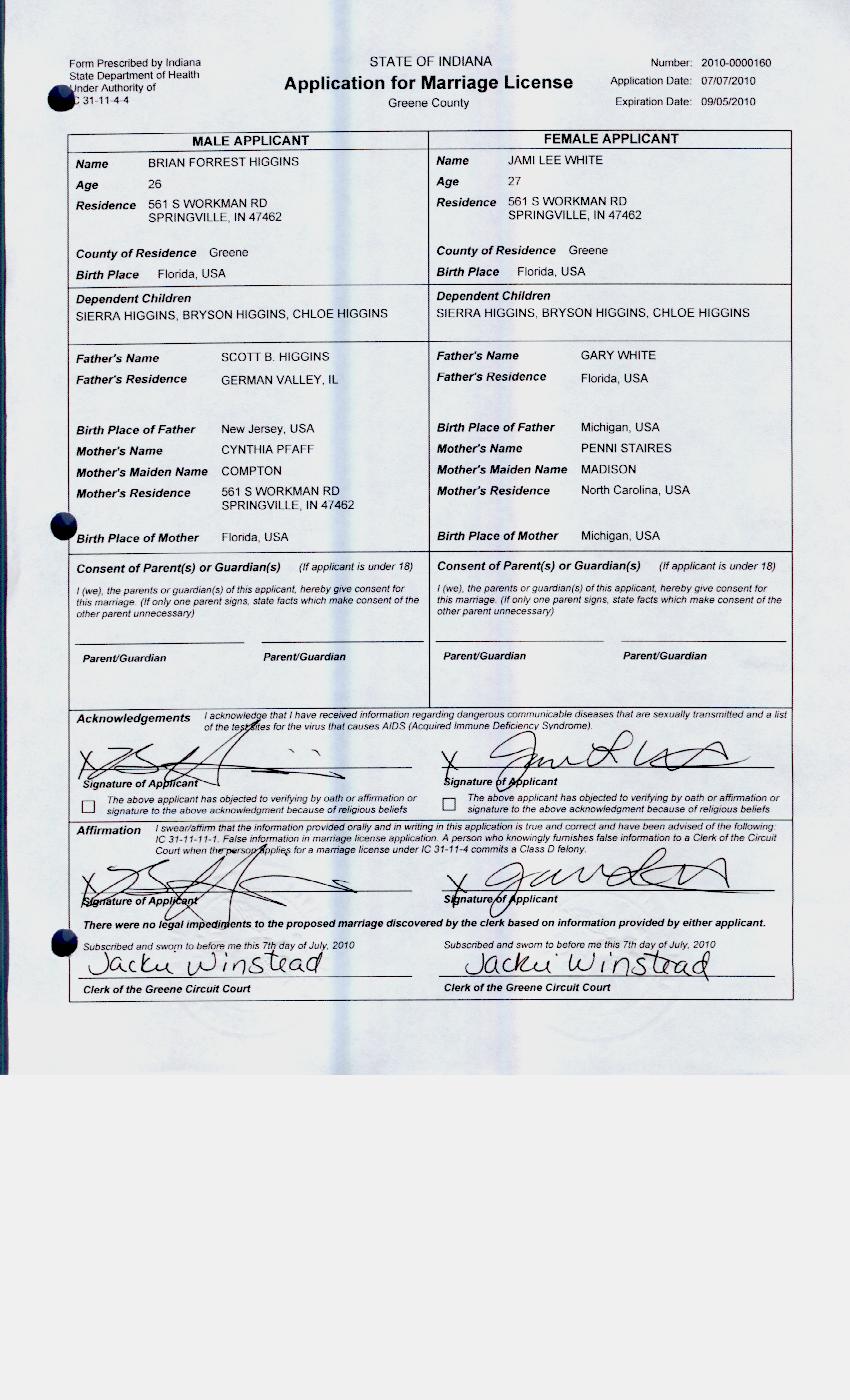 Form Prescribed by Indiana
State Department of Health
Under Authority of
IC 31-11-4-4
STATE OF INDIANA
Application for Marriage License
Greene County
Number: 2010-0000160
Application Date: 07/07/2010
Expiration Date: 09/05/2010
MALE APPLICANT
Name BRIAN FORREST HIGGINS
Age 26
Residence 561 S WORKMAN RD
SPRINGVILLE, IN 47462
County of Residence Greene
Birth Place Florida, USA
Dependent Children
SIERRA HIGGINS, BRYSON HIGGINS, CHLOE HIGGINS
Father's Name SCOTT B. HIGGINS
Father's Residence GERMAN VALLEY, IL
Birth Place of Father New Jersey, USA
Mother's Name CYNTHIA PFAFF
Mother's Maiden Name COMPTON
Mother's Residence 561 S WORKMAN RD
SPRINGVILLE, IN 47462
Birth Place of Mother Florida, USA
Consent of Parent(s) or Guardian(s) (If applicant is under 18)
I (we), the parents or guardian(s) of this applicant, hereby give consent for
this marriage. (If only one parent signs, state facts which make consent of the
other parent unnecessary)
Parent/Guardian Parent/Guardian
FEMALE APPLICANT
Name JAMI LEE WHITE
Age 27
Residence 561 S WORKMAN RD
SPRINGVILLE, IN 47462
County of Residence Greene
Birth Place Florida, USA
Dependent Children
SIERRA HIGGINS, BRYSON HIGGINS, CHLOE HIGGINS
Father's Name GARY WHITE
Father's Residence Florida, USA
Birth Place of Father Michigan, USA
Mother's Name PENNI STAIRES
Mother's Maiden Name MADISON
Mother's Residence North Carolina, USA
Birth Place of Mother Michigan, USA
Consent of Parent(s) or Guardian(s) (If applicant is under 18)
I (we), the parents or guardian(s) of this applicant, hereby give consent for
this marriage. (If only one parent signs, state facts which make consent of the
other parent unnecessary)
Parent/Guardian Parent/Guardian
Acknowledgements I acknowledge that I have received information regarding dangerous communicable diseases that are sexually transmitted and a list
of the test sites for the virus that causes AIDS (Acquired Immune Deficiency Syndrome).
X
X
Signature of Applicant
Signature of Applicant
The above applicant has objected to verifying by oath or affirmation or
signature to the above acknowledgment because of religious beliefs
The above applicant has objected to verifying by oath or affirmation or
signature to the above acknowledgment because of religious beliefs
Affirmation I swear/affirm that the information provided orally and in writing in this application is true and correct and have been advised of the following:
IC 31-11-11-1. False information in marriage license application. A person who knowingly furnishes false information to a Clerk of the Circuit
Court when the person applies for a marriage license under IC 31-11-4 commits a Class D felony.
X
X
Signature of Applicant
Signature of Applicant
There were no legal impediments to the proposed marriage discovered by the clerk based on information provided by either applicant.
Subscribed and sworn to before me this 7th day of July, 2010
Jacku Winstead
Clerk of the Greene Circuit Court
Subscribed and sworn to before me this 7th day of July, 2010
Jacku Winstead
Clerk of the Greene Circuit Court